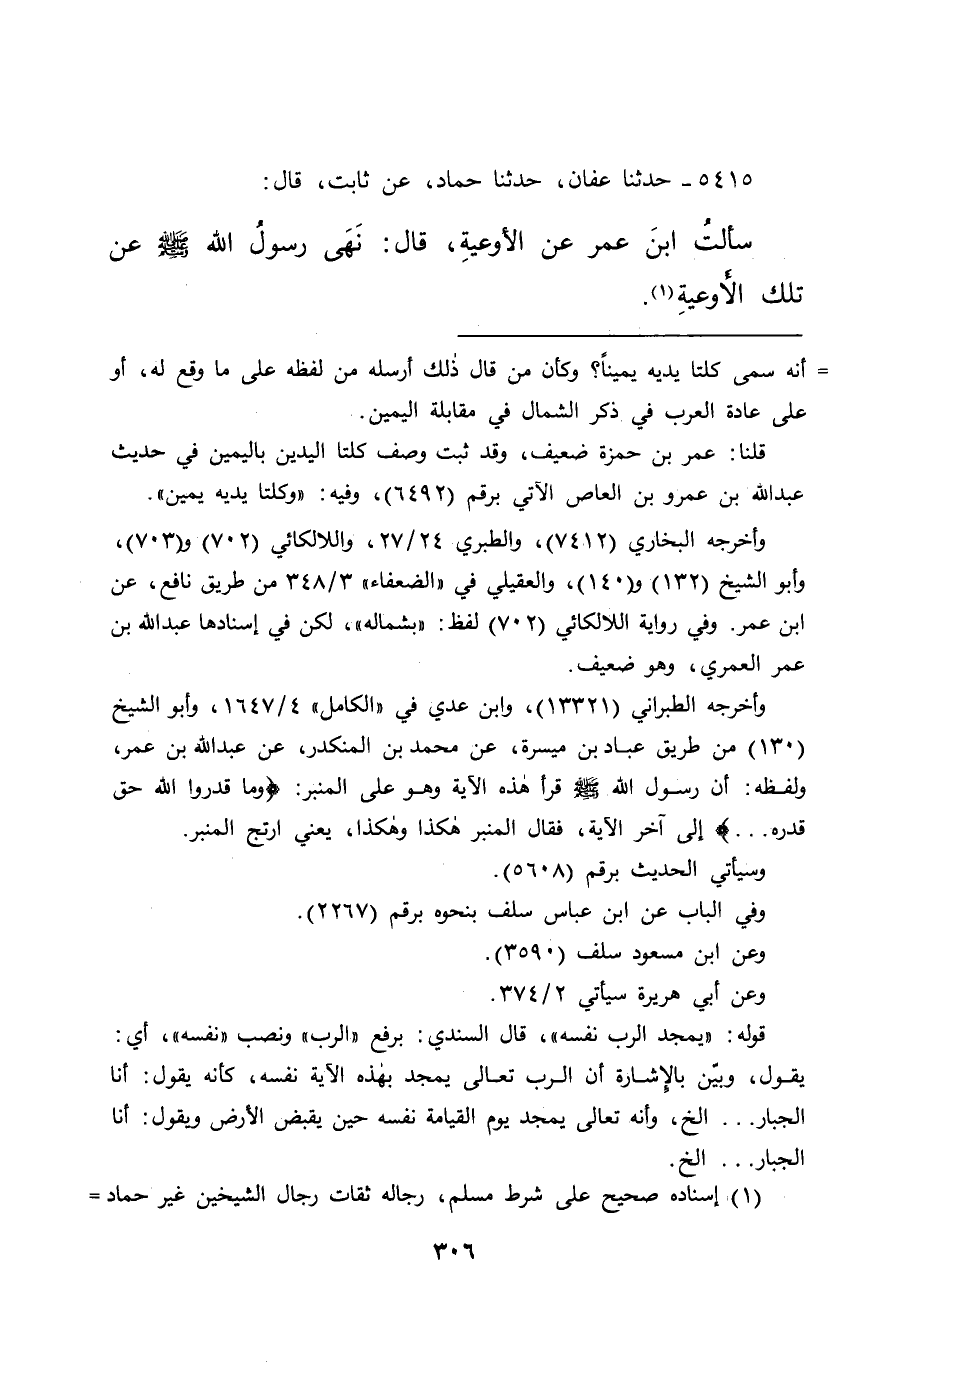 ٥٤١٥ - حدثنا عفان، حدثنا حماد، عن ثابت، قال:
سألتُ ابنَ عمر عن الأوعيةِ، قال: نَهَى رسولُ الله ﷺ عن
تلك الأَوعيةِ(١).
= أنه سمى كلتا يديه يميناً؟ وكأن من قال ذٰلك أرسله من لفظه على ما وقع له، أو
على عادة العرب في ذكر الشمال في مقابلة اليمين.
قلنا: عمر بن حمزة ضعيف، وقد ثبت وصف كلتا اليدين باليمين في حديث
عبدالله بن عمرو بن العاص الآتي برقم (٦٤٩٢)، وفيه: «وكلتا يديه يمين».
وأخرجه البخاري (٧٤١٢)، والطبري ٢٧/٢٤، واللالكائي (٧٠٢) و(٧٠٣)،
وأبو الشيخ (١٣٢) و(١٤٠)، والعقيلي في «الضعفاء» ٣٤٨/٣ من طريق نافع، عن
ابن عمر. وفي رواية اللالكائي (٧٠٢) لفظ: «بشماله»، لكن في إسنادها عبدالله بن
عمر العمري، وهو ضعيف.
وأخرجه الطبراني (١٣٣٢١)، وابن عدي في «الكامل» ١٦٤٧/٤، وأبو الشيخ
(١٣٠) من طريق عباد بن ميسرة، عن محمد بن المنكدر، عن عبدالله بن عمر،
ولفظه: أن رسول الله ﷺ قرأ هٰذه الآية وهو على المنبر: ﴿وما قدروا الله حق
قدره...﴾ إلى آخر الآية، فقال المنبر هٰكذا وهٰكذا، يعني ارتج المنبر.
وسيأتي الحديث برقم (٥٦٠٨).
وفي الباب عن ابن عباس سلف بنحوه برقم (٢٢٦٧).
وعن ابن مسعود سلف (٣٥٩٠).
وعن أبي هريرة سيأتي ٣٧٤/٢.
قوله: «يمجد الرب نفسه»، قال السندي: برفع «الرب» ونصب «نفسه»، أي:
يقول، وبيّن بالإشارة أن الرب تعالى يمجد بهٰذه الآية نفسه، كأنه يقول: أنا
الجبار... الخ، وأنه تعالى يمجد يوم القيامة نفسه حين يقبض الأرض ويقول: أنا
الجبار... الخ.
(١) إسناده صحيح على شرط مسلم، رجاله ثقات رجال الشيخين غير حماد =
٣٠٦